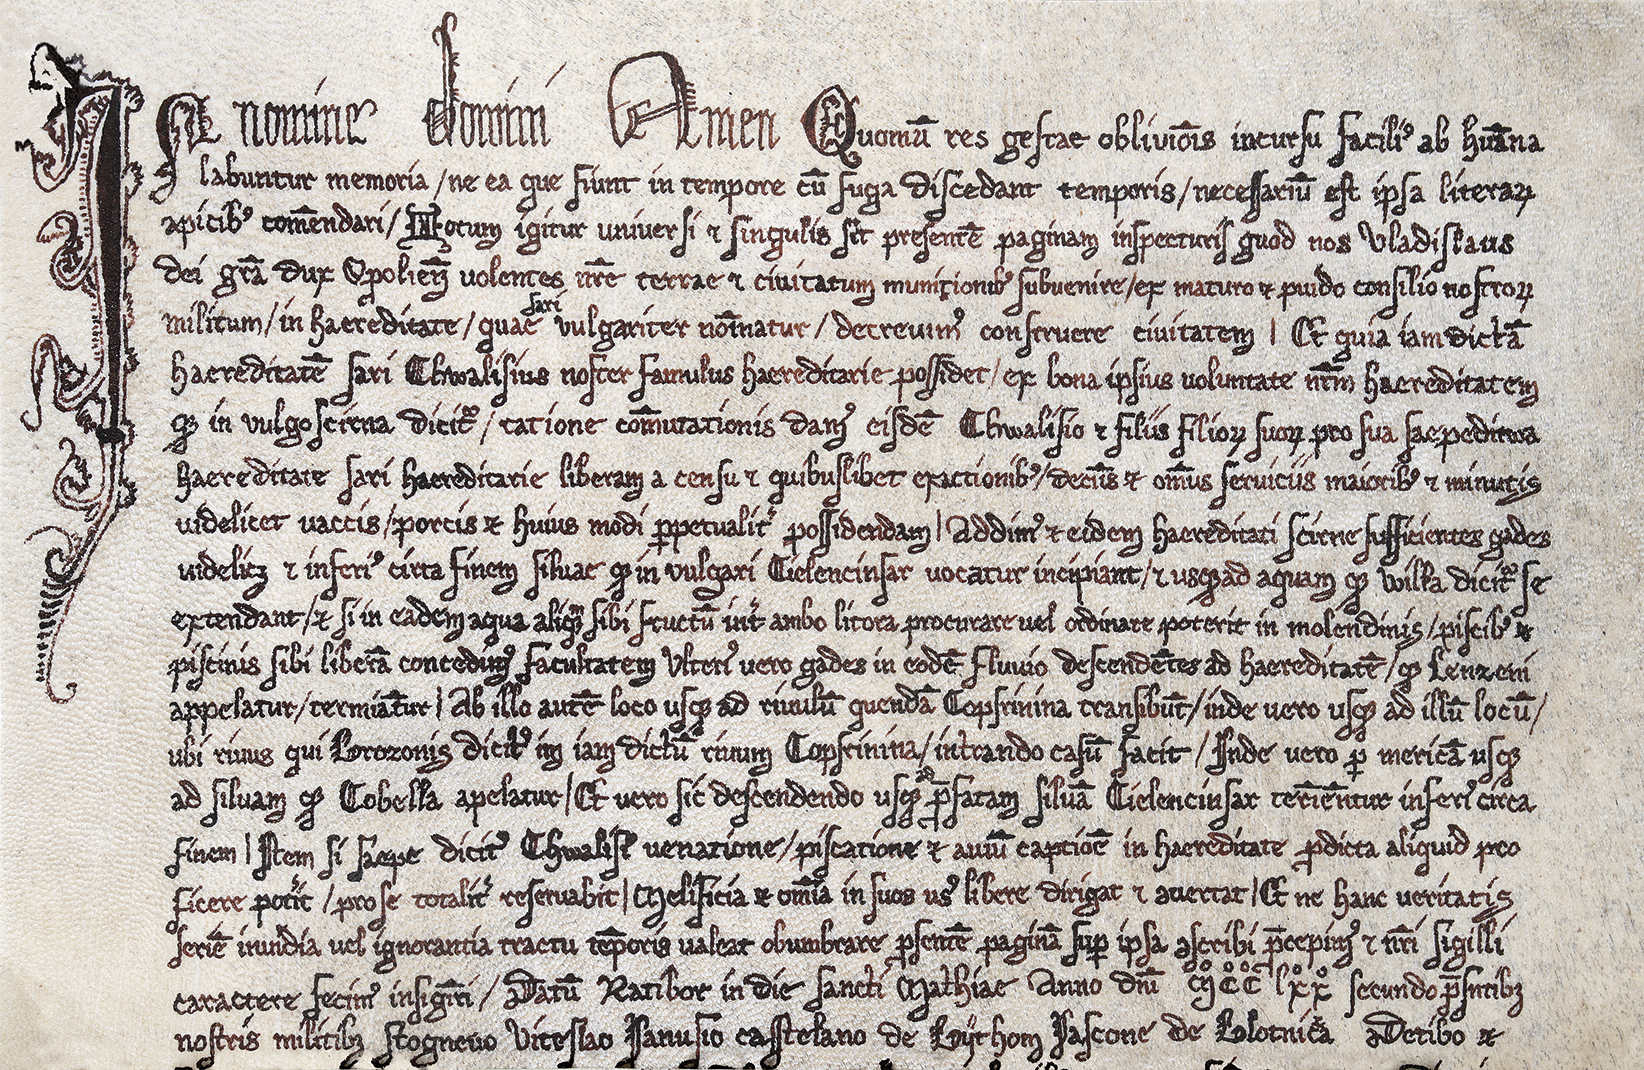 In nomine domini Amen Quomū res gestae obliviōis incursu facili⁹ ab hūana
labuntur memoria / ne ea que fiunt in tempore cū fuga discedant temporis / necessariū est ipsa literaꝝ
apicib⁹ comēndari / Notum igitur universi & singulis sit presentē paginam inspecturis quod nos Vladislaus
dei grā dux Opolieñ volentes nrē terrae & civitatum munitionib⁹ subvenire / ex maturo & puido consilio nostroꝝ
militum / in haereditate / quae sari vulgariter nōinatur / decrevim⁹ construere civitatem | Et quia iam dictā
haereditatē sari Chwalisius noster famulus haereditarie possidet / ex bona ipsius voluntate nrām haereditatem
q̨ in vulgo scirna dicit᷑ / ratione comūtationis dam⁹ eisdē Chwalisio & filiis filioꝝ suoꝝ pro sua saepedicta
haereditate sari haereditarie liberam a censu & quibuslibet exactionib⁹ / decīis & omībus serviciis maiorib⁹ & minutis
videlicet vaccis / porcis & huius modi ꝑpetualit᷑ possidendam | Addim⁹ & eidem haereditati scirne sufficientes gades
videlicꝫ & inferi⁹ circa finem silvae q̨ in vulgari Cielencinsar vocatur incipiant / & usq̨ ad aquam q̨ Willa dicit᷑ se
extendant / & si in eadem aqua aliqm̄ sibi fructū int᷑ ambo litora procurare vel ordinare poterit in molendinis / piscib⁹ &
piscinis sibi liberā concedim⁹ facultatem Ulteri⁹ vero gades in eodē fluvio descendētes ad haereditatē / q̨ Lenzeni
appelatur / termiātur | Ab illo autē loco usq̨ ad rivulū quendā Copsinina transibūt / inde vero usq̨ ad illū locū /
ubi rivus qui Brozonis dicit᷑ in iam dictū rivum Copsinina / intrando casū facit / Inde vero ꝑ mericā usq̨
ad silvam q̨ Cobella apelatur | Et vero sic descendendo usq̨ ad p̄fatam silvā Cielencinsar termiēntur inferi⁹ circa
finem | Item si saepe dict⁹ Chwalisi venatione / piscatione & aviū captiōe in haereditate p̄dicta aliquid pro
ficere potit᷑ / pro se totalit᷑ reservabit | Melificia & omīa in suos us⁹ libere dirigat & avertat | Et ne hanc veritatis
seriē invidia vel ignorantia tractu tēporis valeat obumbrare p̄sentē paginā suꝑ ipsa ꝯscribi p̄cepim⁹ & nr̄i sigilli
caractere fecim⁹ insigr̄i / Datū Ratibor in die sancti Mathiae Anno dnī MCCLXX secundo p̄sntibꝫ
nostris militibꝫ Stognevo Viteslao Ianusio castelano de Bythom Iascone de Blotnica Detibo &